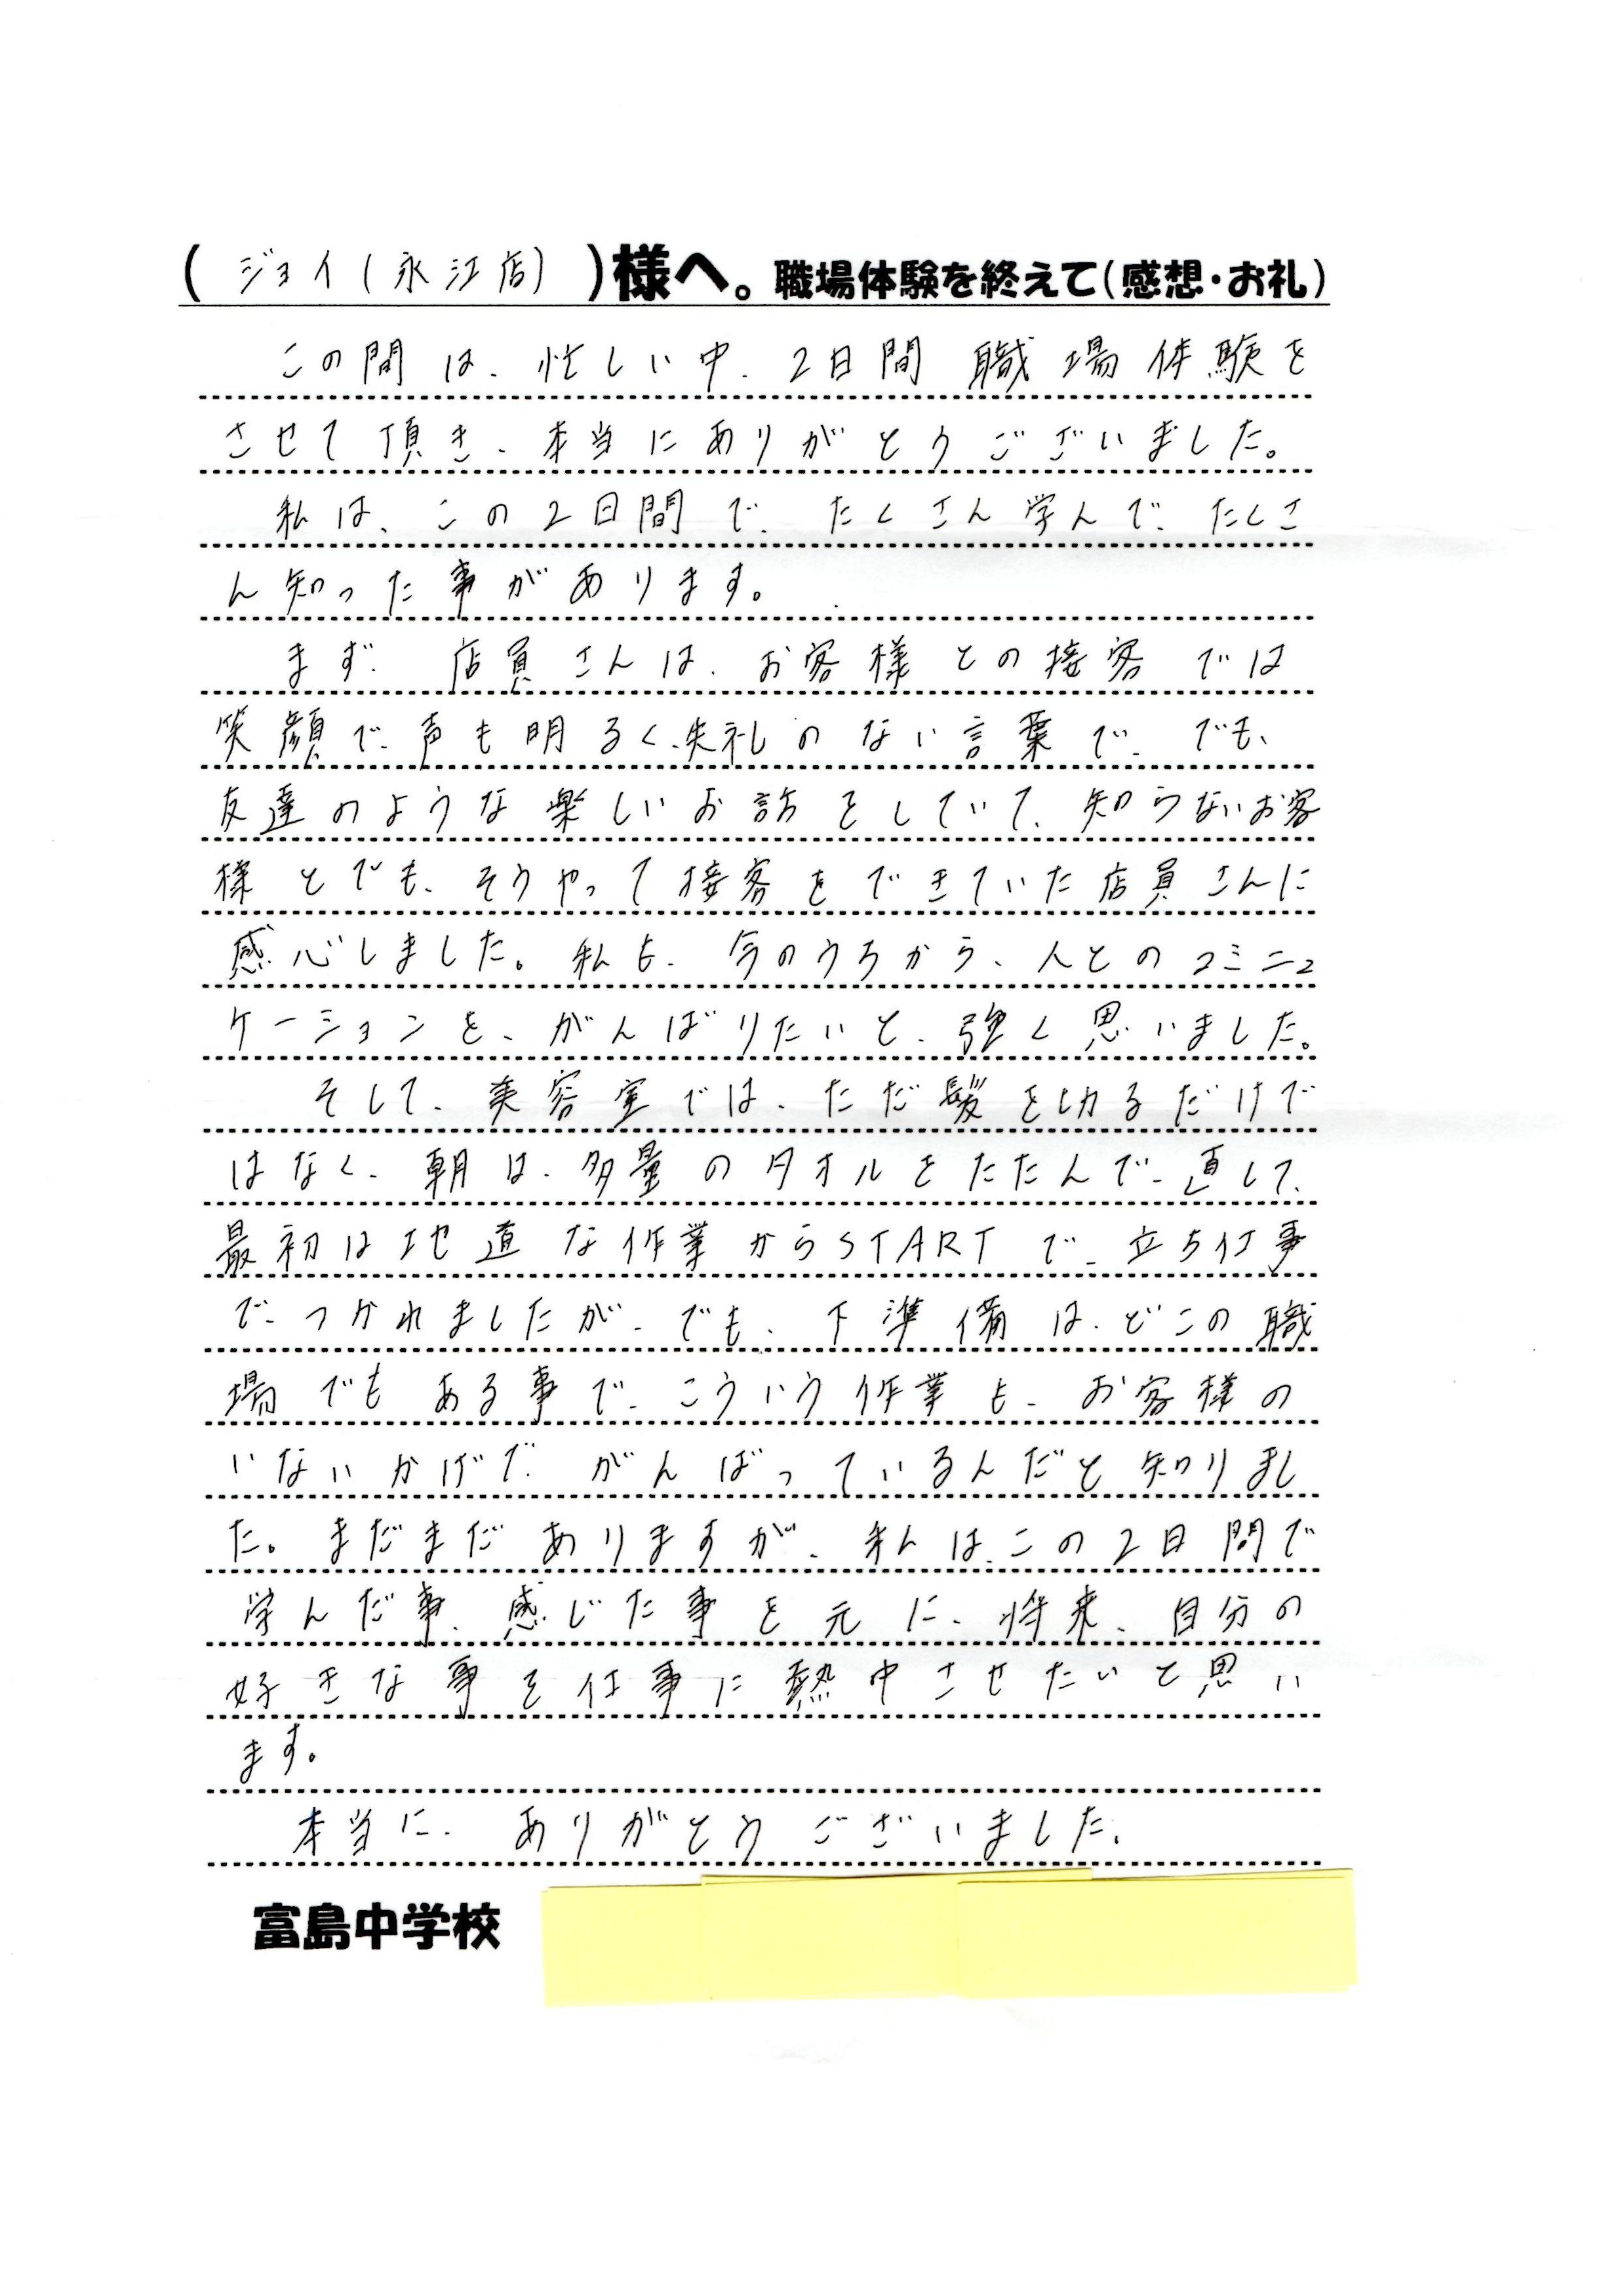 ( ジョイ(永江店) )様へ。職場体験を終えて(感想・お礼)
この間は、忙しい中、2日間職場体験を
させて頂き、本当にありがとうございました。
私は、この2日間で、たくさん学んで、たくさ
ん知った事があります。
まず、店員さんは、お客様との接客では
笑顔で、声も明るく、失礼のない言葉で、でも、
友達のような楽しいお話をしていて、知らないお客
様とでも、そうやって接客をできていた店員さんに
感心しました。私も、今のうちから、人とのコミニュ
ケーションを、がんばりたいと、強く思いました。
そして、美容室では、ただ髪を切るだけで
はなく、朝は、多量のタオルをたたんで、直して、
最初は地道な作業からSTARTで、立ち仕事
で、つかれましたが、でも、下準備は、どこの職
場でもある事で、こういう作業も、お客様の
いないかげで、がんばっているんだと知りまし
た。まだまだありますが、私は、この2日間で
学んだ事、感じた事を元に、将来、自分の
好きな事を仕事に熱中させたいと思い
ます。
本当に、ありがとうございました。
富島中学校